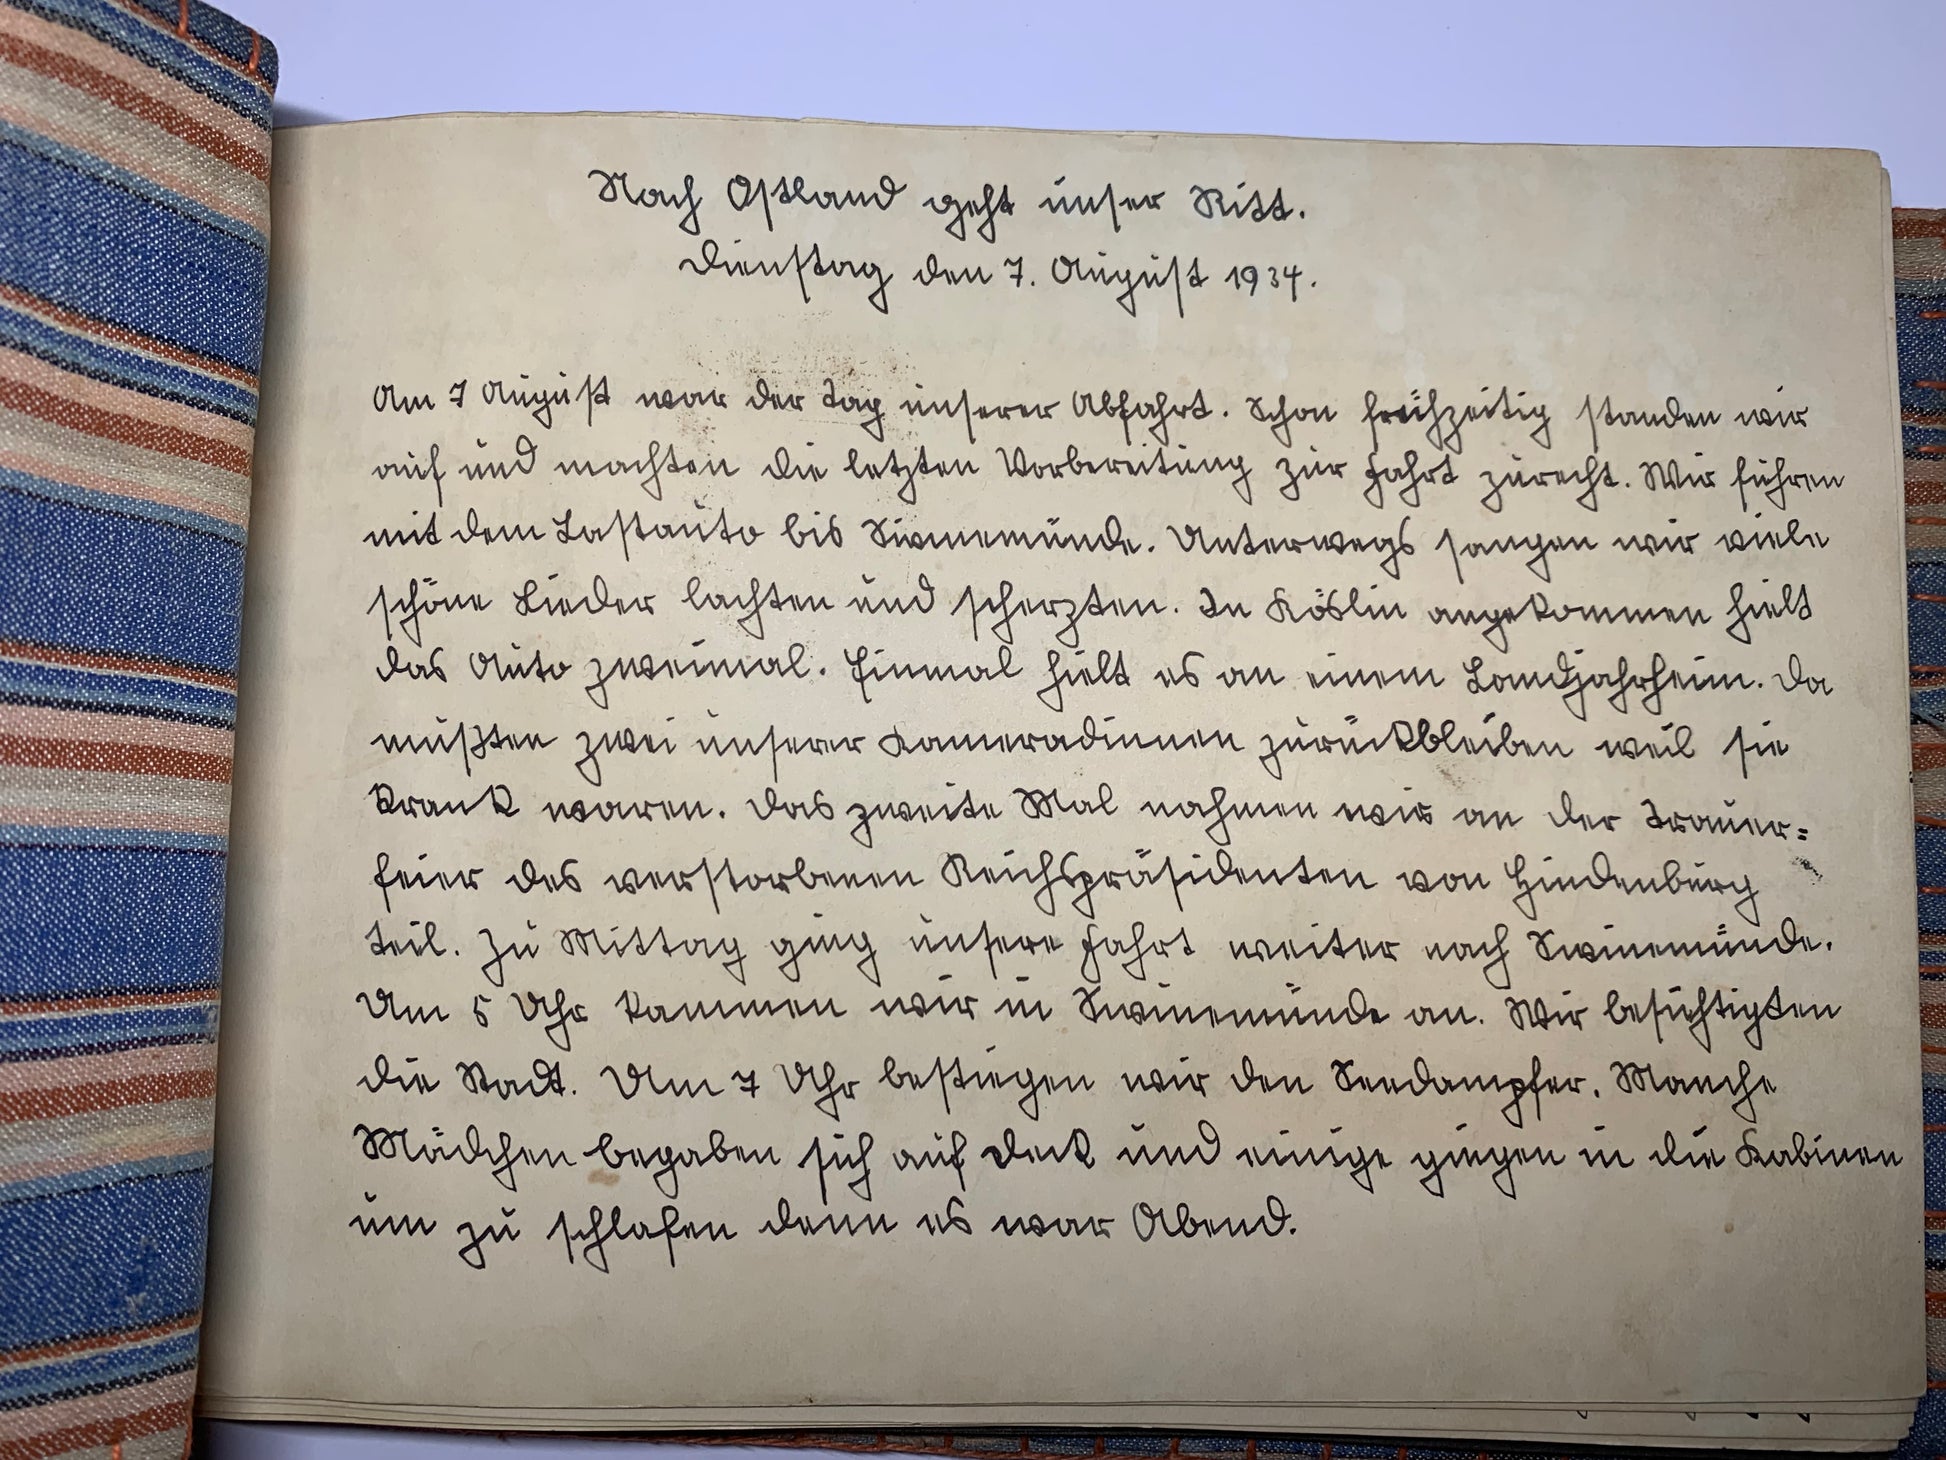 Nach Ostland geht unser Ritt.
Dienstag den 7. August 1934.
Am 7 August war der Tag unserer Abfahrt. Schon frühzeitig standen wir
auf und machten die letzten Vorbereitung zur Fahrt zurecht. Wir fuhren
mit dem Lastauto bis Swinemünde. Unterwegs sangen wir viele
schöne Lieder lachten und scherzten. In Köslin angekommen hielt
das Auto zweimal. Einmal hielt es an einem Landjahrheim. Da
mußten zwei unserer Kameradinnen zurückbleiben weil sie
krank waren. Das zweite Mal nahmen wir an der Trauer=
feier des verstorbenen Reichspräsidenten von Hindenburg
teil. Zu Mittag ging unsere Fahrt weiter nach Swinemünde.
Um 5 Uhr kammen wir in Swinemünde an. Wir besichtigten
die Stadt. Um 7 Uhr bestiegen wir den Seedampfer. Manche
Mädchen begaben sich auf Deck und einige gingen in die Kabinen
um zu schlafen denn es war Abend.